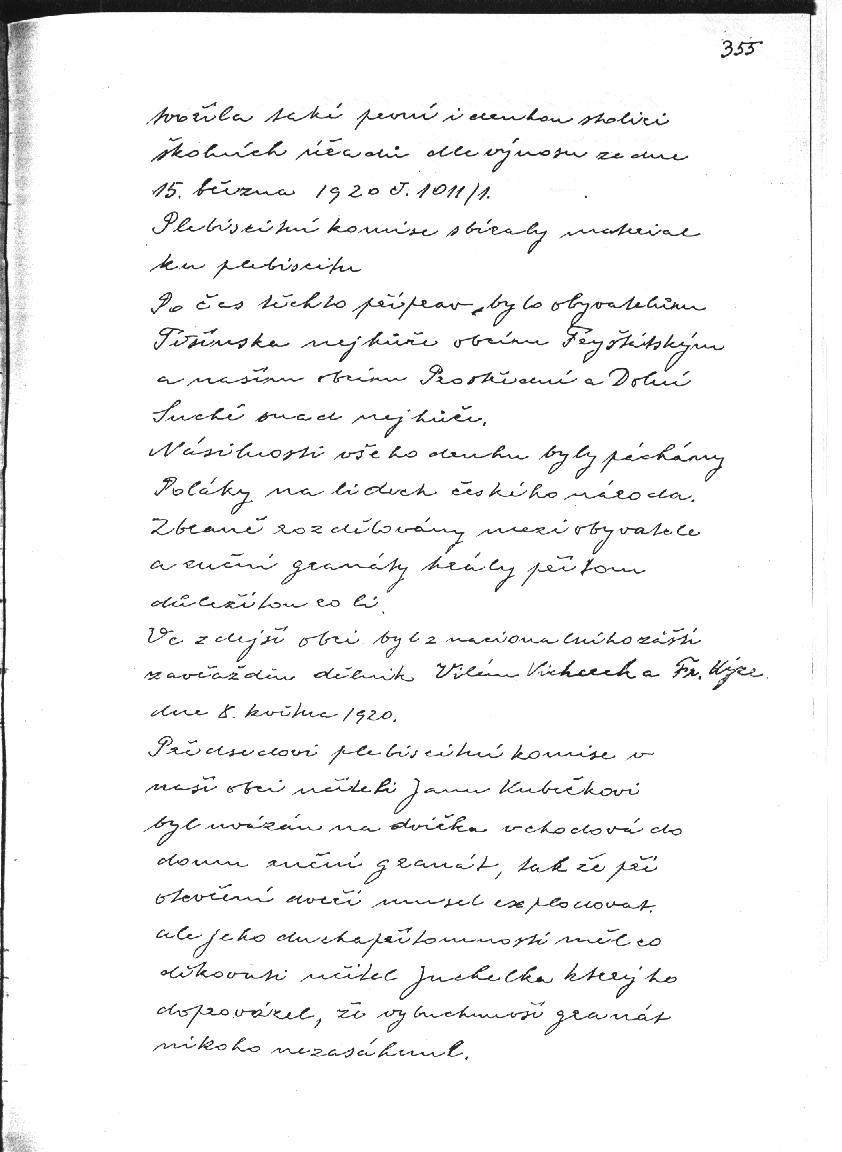 355
tvořila také první i druhou stolici
školních úřadů dle výnosu ze dne
15. března 1920 č. 1011/1.
Plebiscitní komise sbíraly materiál
ku plebiscitu
Po čas těchto příprav bylo obyvatelům
Těšínska nejhůře obcím Fryštátským
a našim obcím Prostřední a Dolní
Suché snad nejhůře.
Násilnosti všeho druhu byly páchány
Poláky na lidech českého národa.
Zbraně rozdělovány mezi obyvatele
a ruční granáty hrály při tom
důležitou roli.
Ve zdejší obci byl z nacionalního záští
zavražděn dělník Vilém a Fr.
dne 8. května 1920.
Předsedovi plebiscitní komise v
naší obci učiteli Janu Kubičkovi
byl uvázán na dvířka vchodová do
domu ruční granát, tak že při
otevření dveří musel explodovat.
ale jeho duchapřítomnosti měl co
děkovati učitel Juchelka který ho
doprovázel, že vybuchnuvší granát
nikoho nezasáhnul.